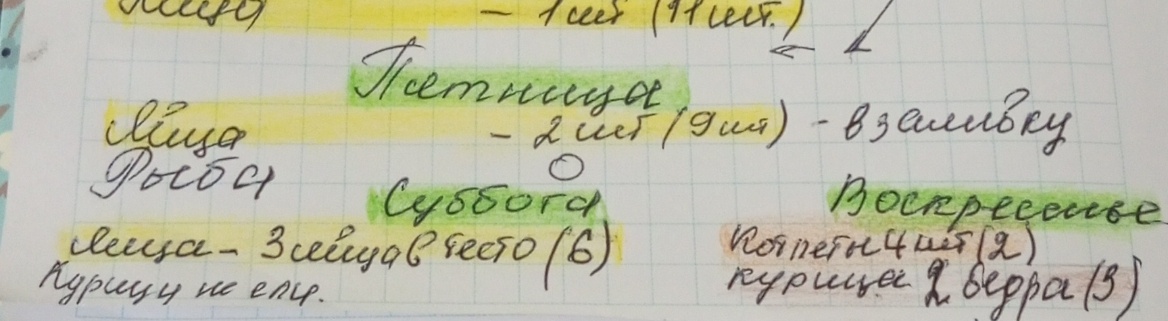 Яйца - 1 шт (11 шт.)
Пятница
Яйца - 2 шт (9 шт) - в заливку
Рыба 0
Суббота
Воскресенье
Яйца - 3 яйца в тесто (6)
Котлеты 4 шт (2)
Курицу не ели.
курица 2 бедра (3)